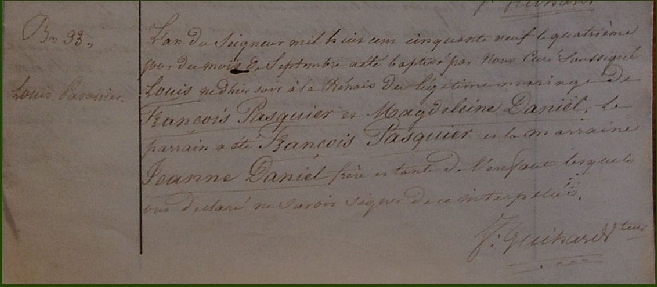 Bn 33,
Louis Pasquier.
L'an du Seigneur mil huit cent cinquante neuf le quatrième
jour du mois de Septembre a été baptisé par Nous Curé Soussigné
Louis né hier soir à la du légitime mariage de
François Pasquier et Magdeleine Daniel, Le
parrain a été François Pasquier et la marraine
Jeanne Daniel frère et tante de l'enfant lesquels
ont déclaré ne savoir signer de ce interpellés.
J. Guihard